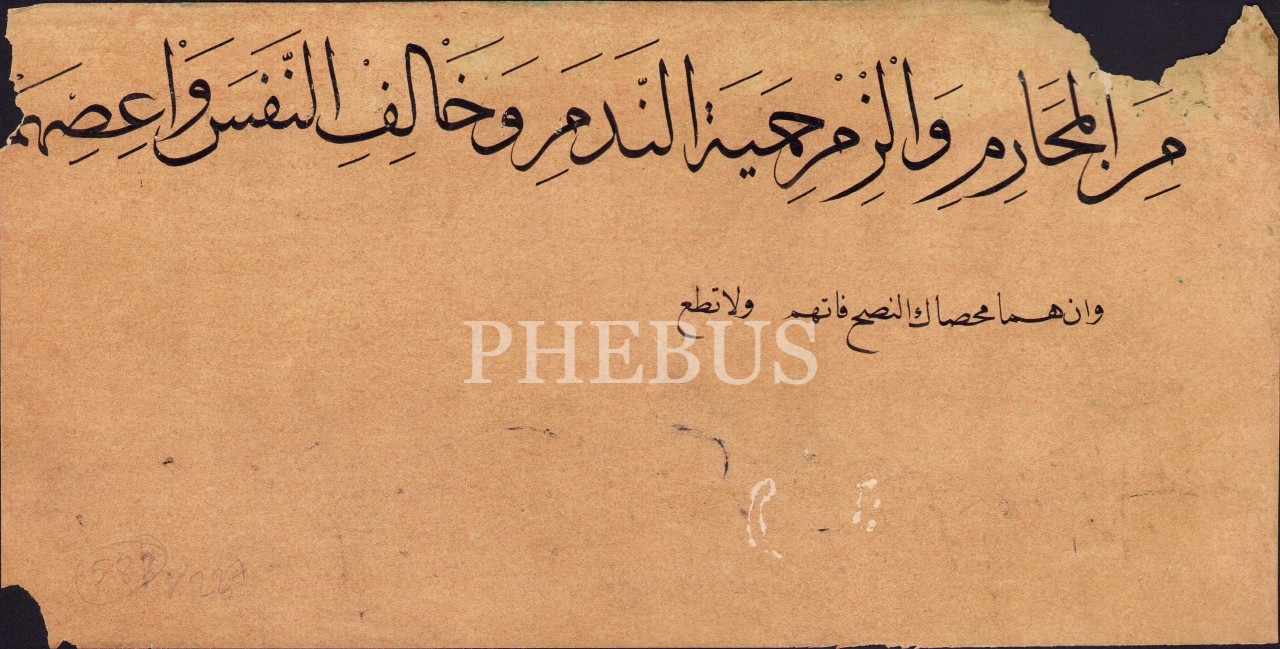 مِنَ الْمَحَارِمِ وَالْزَمْ حِمْيَةَ النَّدَمِ وَخَالِفِ النَّفْسَ وَاعْصِهِمَا
وان هما محضاك النصح فاتهم ولا تطع
PHEBUS